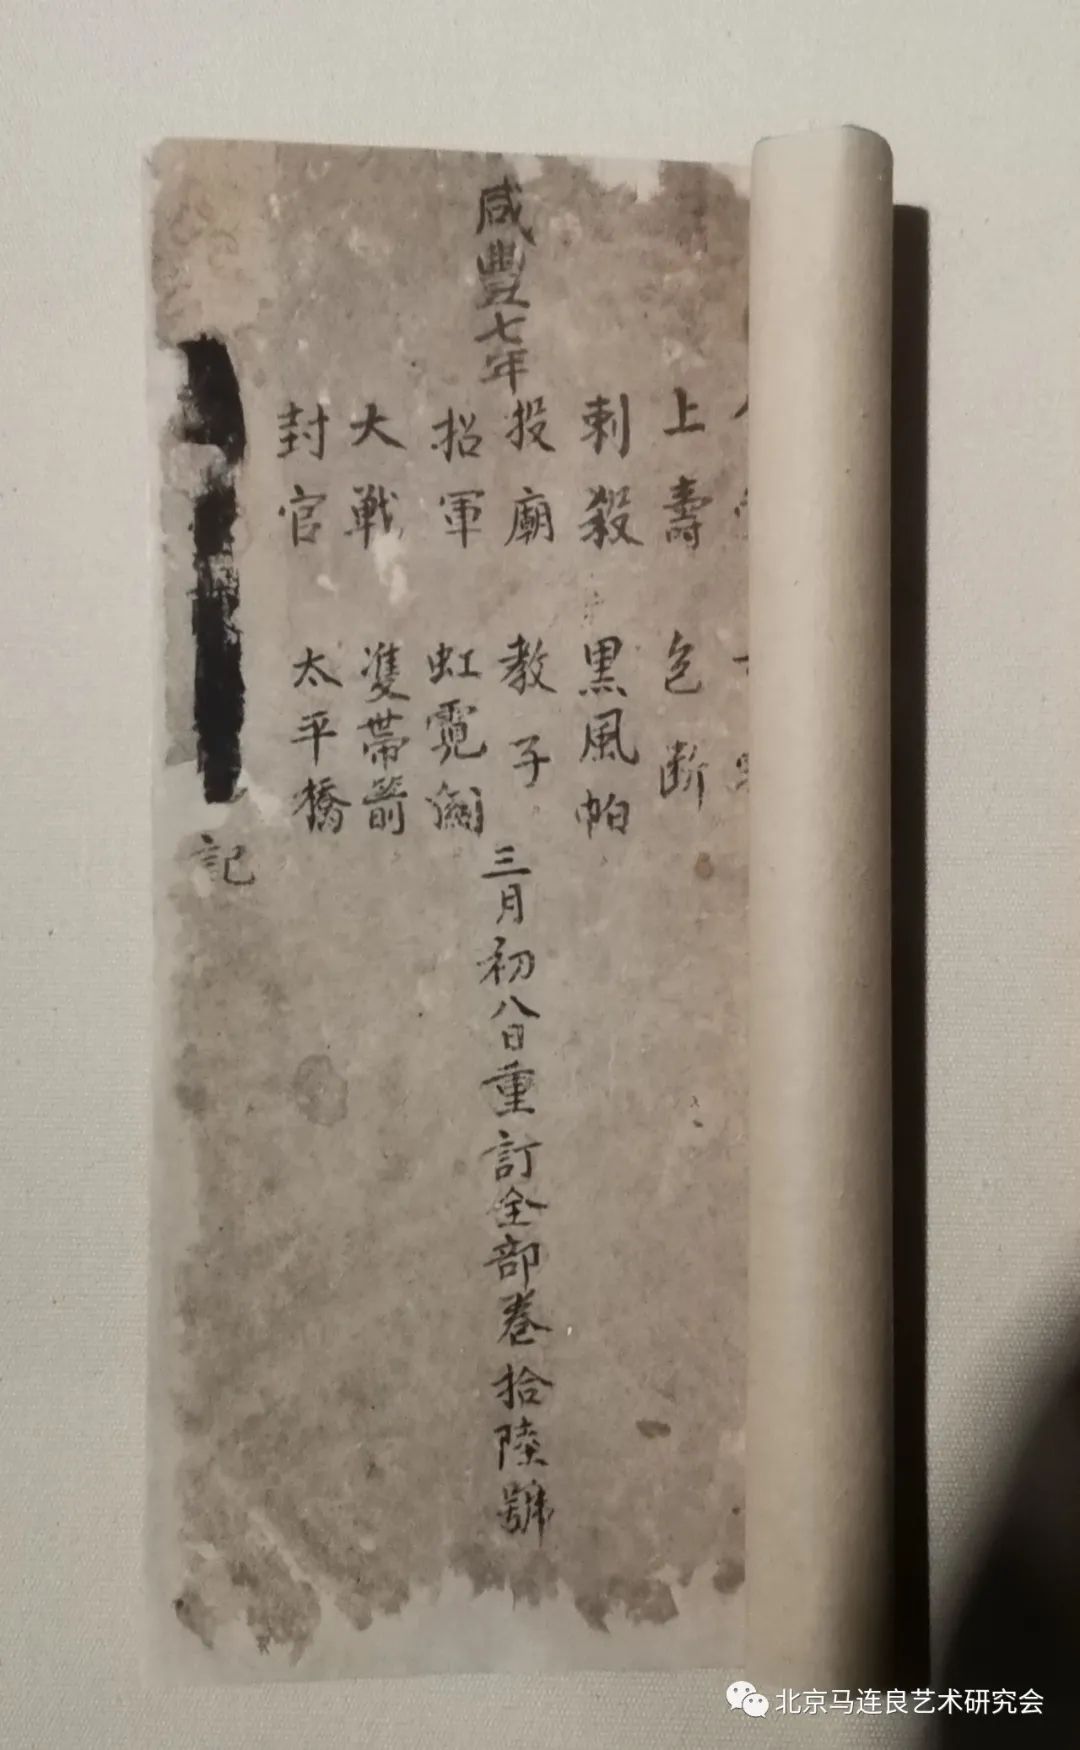 上壽 断
刺殺 黑風帕
咸豐七年
投廟 教子
三月初八日重訂全部卷拾陸號
招軍 虹霓關
大戦 雙帶箭
封官 太平橋
記
北京马连良艺术研究会